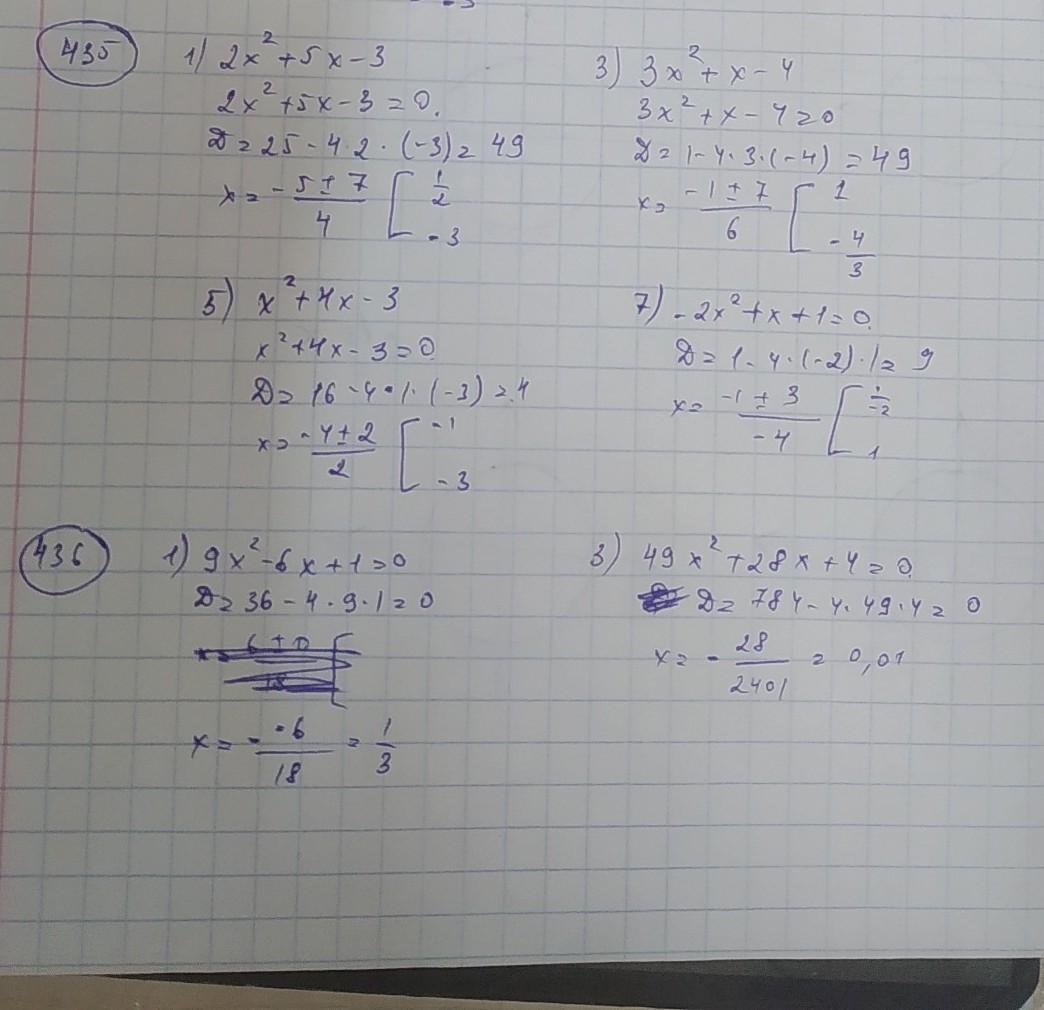 435
1) 2x²+5x-3
2x²+5x-3=0.
D=25-4·2·(-3)=49
x=\frac{-5±7}{4} [ \frac{1}{2} ; -3
3) 3x²+x-4
3x²+x-4=0
D=1-4·3·(-4)=49
x=\frac{-1±7}{6} [ 1 ; -\frac{4}{3}
5) x²+4x-3
x²+4x-3=0
D=16-4·1·(-3)=4
x=\frac{-4±2}{2} [ -1 ; -3
7) -2x²+x+1=0
D=1-4·(-2)·1=9
x=\frac{-1±3}{-4} [ \frac{1}{-2} ; 1
436
1) 9x²-6x+1=0
D=36-4·9·1=0
x=-\frac{-6}{18}=\frac{1}{3}
3) 49x²+28x+4=0
D=784-4·49·4=0
x=-\frac{28}{2401}=0,01